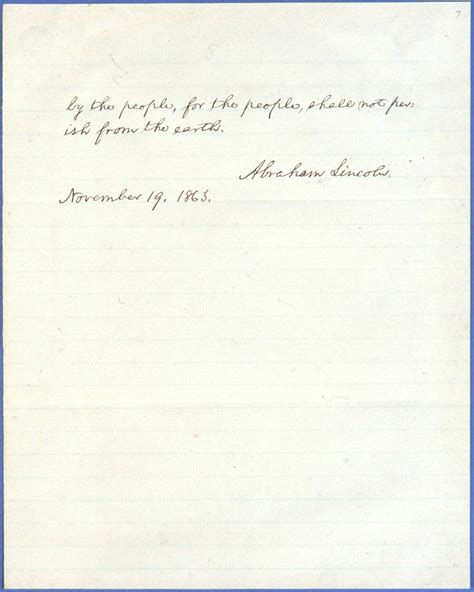 7
by the people, for the people, shall not per-
ish from the earth.
Abraham Lincoln.
November 19, 1863.